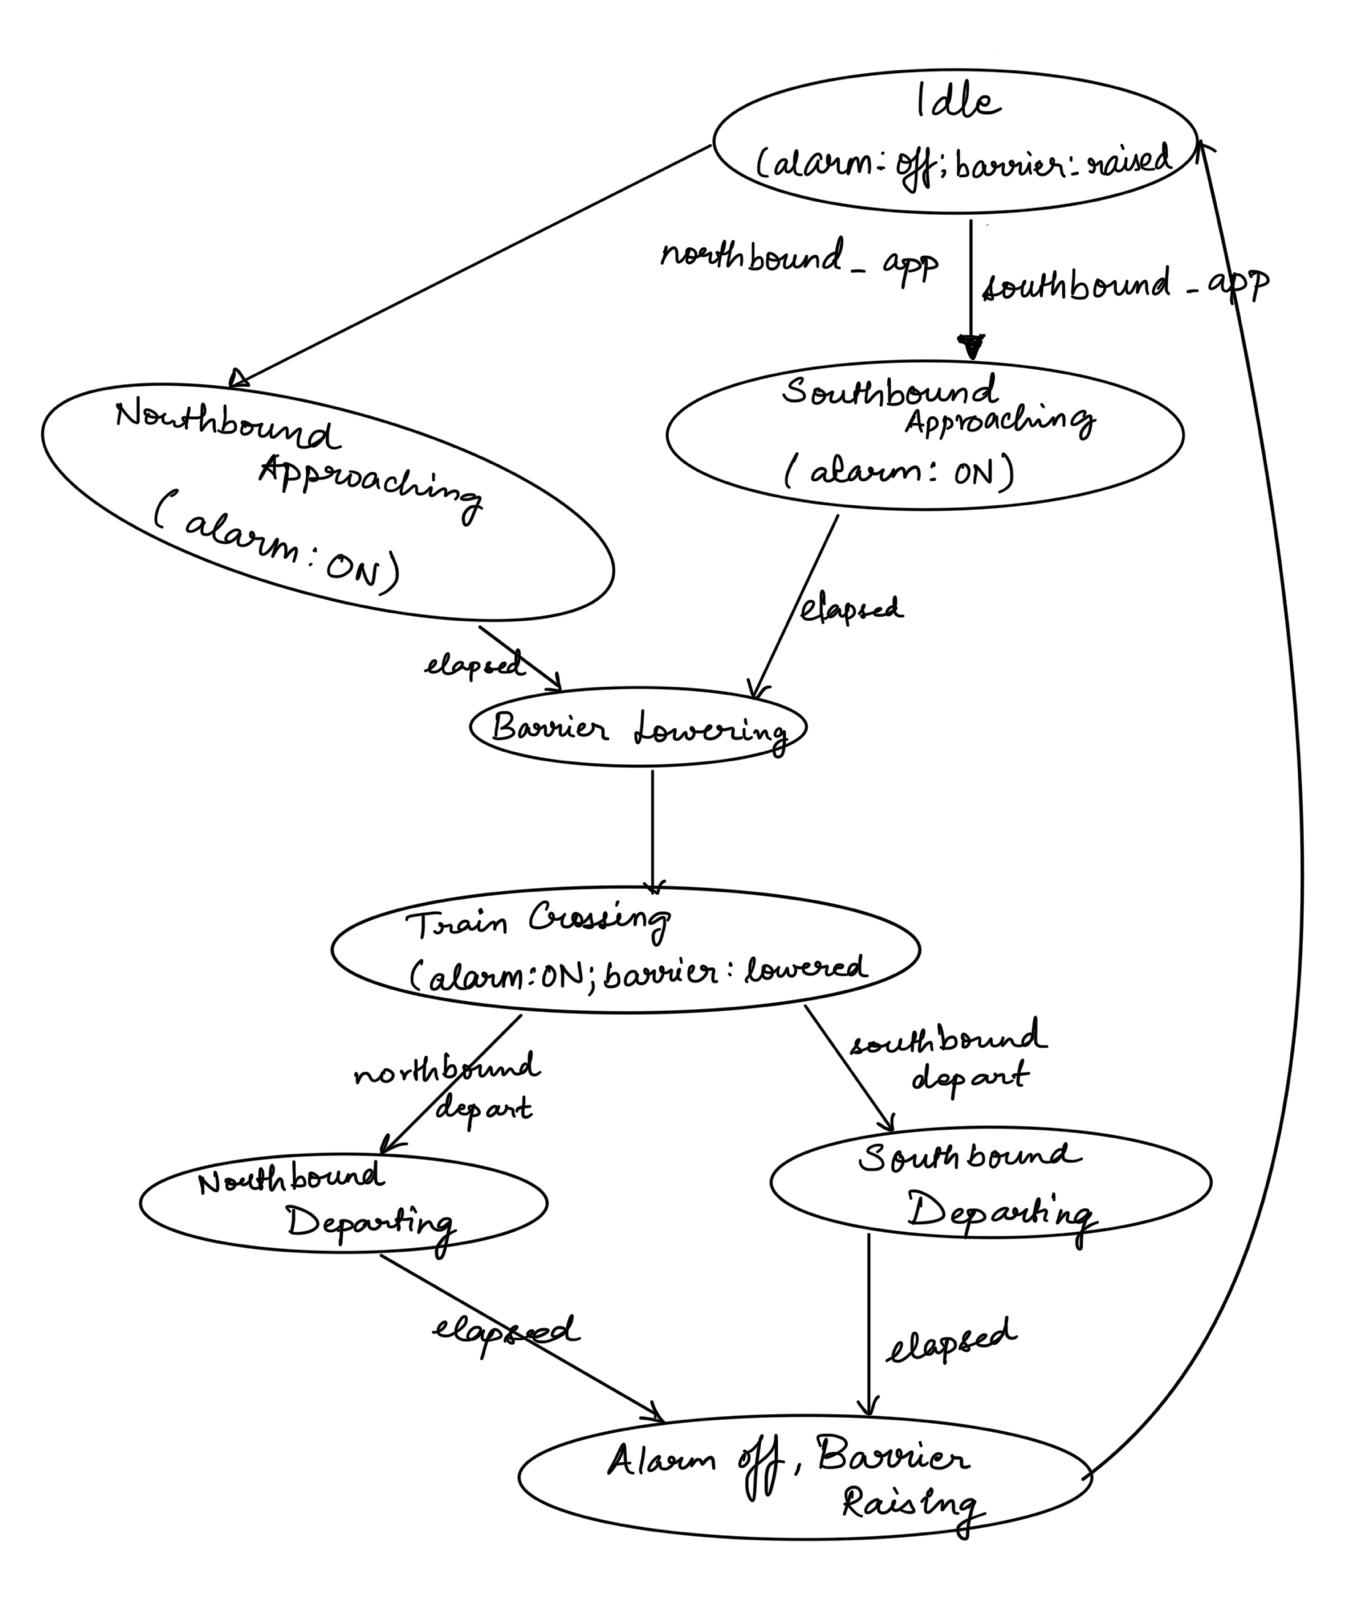 Idle
(alarm: off; barrier: raised
northbound_app
southbound_app
Southbound
Approaching
(alarm: ON)
Northbound
Approaching
(alarm: ON)
elapsed
elapsed
Barrier Lowering
Train Crossing
(alarm: ON; barrier: lowered
northbound
depart
southbound
depart
Northbound
Departing
Southbound
Departing
elapsed
elapsed
Alarm off, Barrier
Raising